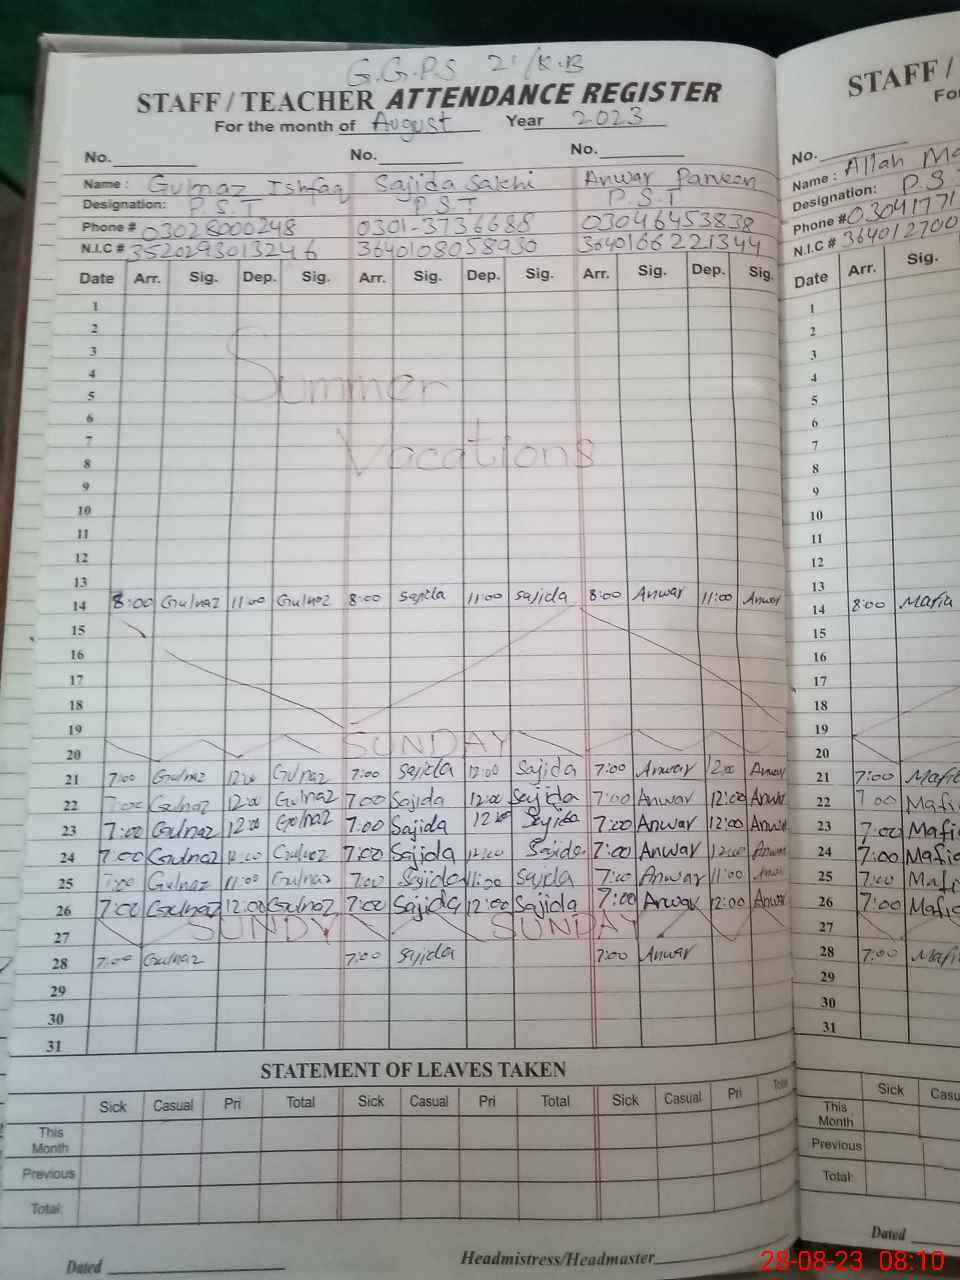 G.G.P.S 21/K.B
STAFF / TEACHER ATTENDANCE REGISTER
For the month of August Year 2023
No. No. No.
Name : Gulnaz Ishfaq Sajida Sakhi Anwar Parveen
Designation: P.S.T P.S.T P.S.T
Phone # 03028000248 0301-3736688 03046453838
N.I.C # 3520293013246 3640108058930 3640166221344
Date Arr. Sig. Dep. Sig. Arr. Sig. Dep. Sig. Arr. Sig. Dep. Sig.
1
2
3
4
Summer
5
6
7
Vacations
8
9
10
11
12
13
14 8:00 Gulnaz 11:00 Gulnaz 8:00 Sajida 11:00 Sajida 8:00 Anwar 11:00 Anwar
15
16
17
18
19
20 SUNDAY
21 7:00 Gulnaz 12:00 Gulnaz 7:00 Sajida 12:00 Sajida 7:00 Anwar 12:00 Anwar
22 7:00 Gulnaz 12:00 Gulnaz 7:00 Sajida 12:00 Sajida 7:00 Anwar 12:00 Anwar
23 7:00 Gulnaz 12:00 Gulnaz 7:00 Sajida 12:00 Sajida 7:00 Anwar 12:00 Anwar
24 7:00 Gulnaz 12:00 Gulnaz 7:00 Sajida 12:00 Sajida 7:00 Anwar 12:00 Anwar
25 7:00 Gulnaz 11:00 Gulnaz 7:00 Sajida 11:00 Sajida 7:00 Anwar 11:00 Anwar
26 7:00 Gulnaz 12:00 Gulnaz 7:00 Sajida 12:00 Sajida 7:00 Anwar 12:00 Anwar
27 SUNDY SUNDAY
28 7:00 Gulnaz 7:00 Sajida 7:00 Anwar
29
30
31
STATEMENT OF LEAVES TAKEN
Sick Casual Pri Total Sick Casual Pri Total Sick Casual Pri Total
This Month
Previous
Total:
Dated Headmistress/Headmaster
STAFF /
For
No.
Name : Allah
Designation: P.S.T
Phone # 03041771
N.I.C # 364012700
Date Arr. Sig.
1
2
3
4
5
6
7
8
9
10
11
12
13
14 8:00 Mafia
15
16
17
18
19
20
21 7:00 Mafia
22 7:00 Mafi
23 7:00 Mafia
24 7:00 Mafia
25 7:00 Mafi
26 7:00 Mafia
27
28 7:00 Mafi
29
30
31
Sick Casu
This Month
Previous
Total:
Dated
28-08-23 08:10